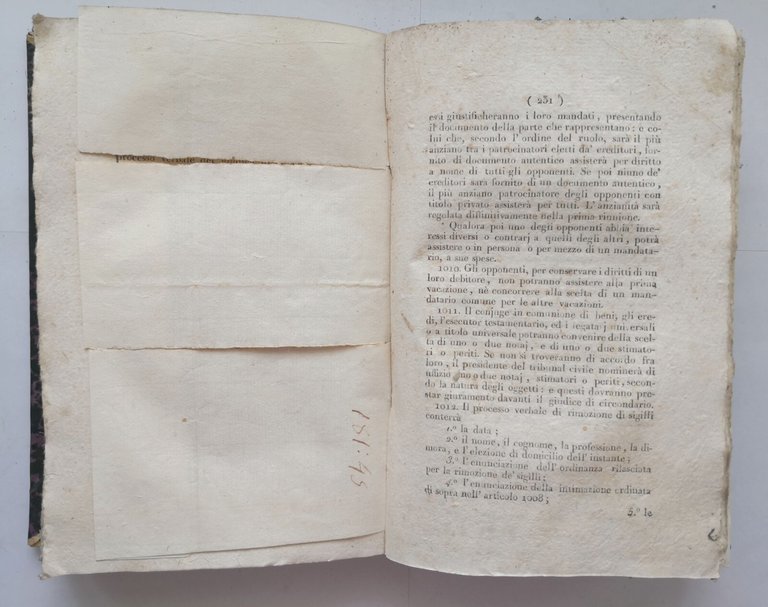 processo verbale
181:45
( 231 )
essi giustificheranno i loro mandati, presentando
il documento della parte che rappresentano: e co-
lui che, secondo l'ordine del ruolo, sarà il più
anziano fra i patrocinatori eletti da' creditori, for-
nito di documento autentico assisterà per diritto
a nome di tutti gli opponenti. Se poi niuno de'
creditori sarà fornito di un documento autentico,
il più anziano patrocinatore degli opponenti con
titolo privato assisterà per tutti. L'anzianità sarà
regolata diffinitivamente nella prima riunione.
Qualora poi uno degli opponenti abbia inte-
ressi diversi o contrarj a quelli degli altri, potrà
assistere o in persona o per mezzo di un mandata-
rio, a sue spese.
1010. Gli opponenti, per conservare i diritti di un
loro debitore, non potranno assistere alla prima
vacazione, nè concorrere alla scelta di un man-
datario comune per le altre vacazioni.
1011. Il conjuge in comunione di beni, gli ere-
di, l'esecutor testamentario, ed i legatarj universali
o a titolo universale potranno convenire della scel-
ta di uno o due notaj, e di uno o due stimato-
ri o periti. Se non si troveranno di accordo fra
loro, il presidente del tribunal civile nominerà di
uffizio uno o due notaj, stimatori o periti, secon-
do la natura degli oggetti: e questi dovranno pre-
star giuramento davanti il giudice di circondario.
1012. Il processo verbale di rimozione di sigilli
conterrà
1.º la data;
2.º il nome, il cognome, la professione, la di-
mora, e l'elezione di domicilio dell'instante;
3.º l'enunciazione dell'ordinanza rilasciata
per la rimozione de' sigilli;
4.º l'enunciazione della intimazione ordinata
di sopra nell'articolo 1008;
5.º le